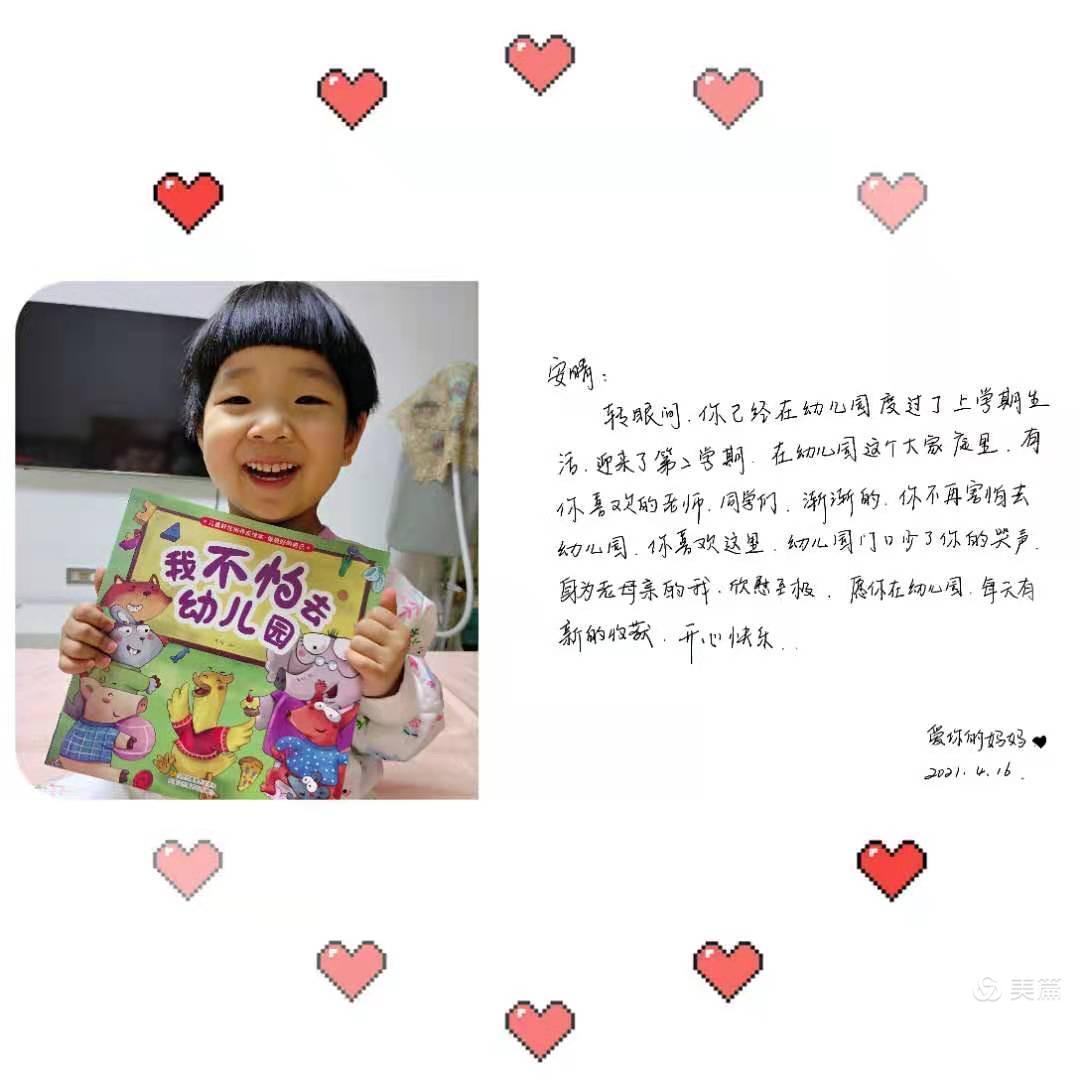 安晴：
转眼间，你已经在幼儿园度过了上学期生
活，迎来了第二学期，在幼儿园这个大家庭里，有
你喜欢的老师，同学们，渐渐的，你不再害怕去
幼儿园，你喜欢这里，幼儿园门口少了你的哭声，
身为老母亲的我，欣慰至极，愿你在幼儿园，每天有
新的收获，开心快乐..
爱你的妈妈
2021.4.16.
我不怕去
幼儿园
美篇